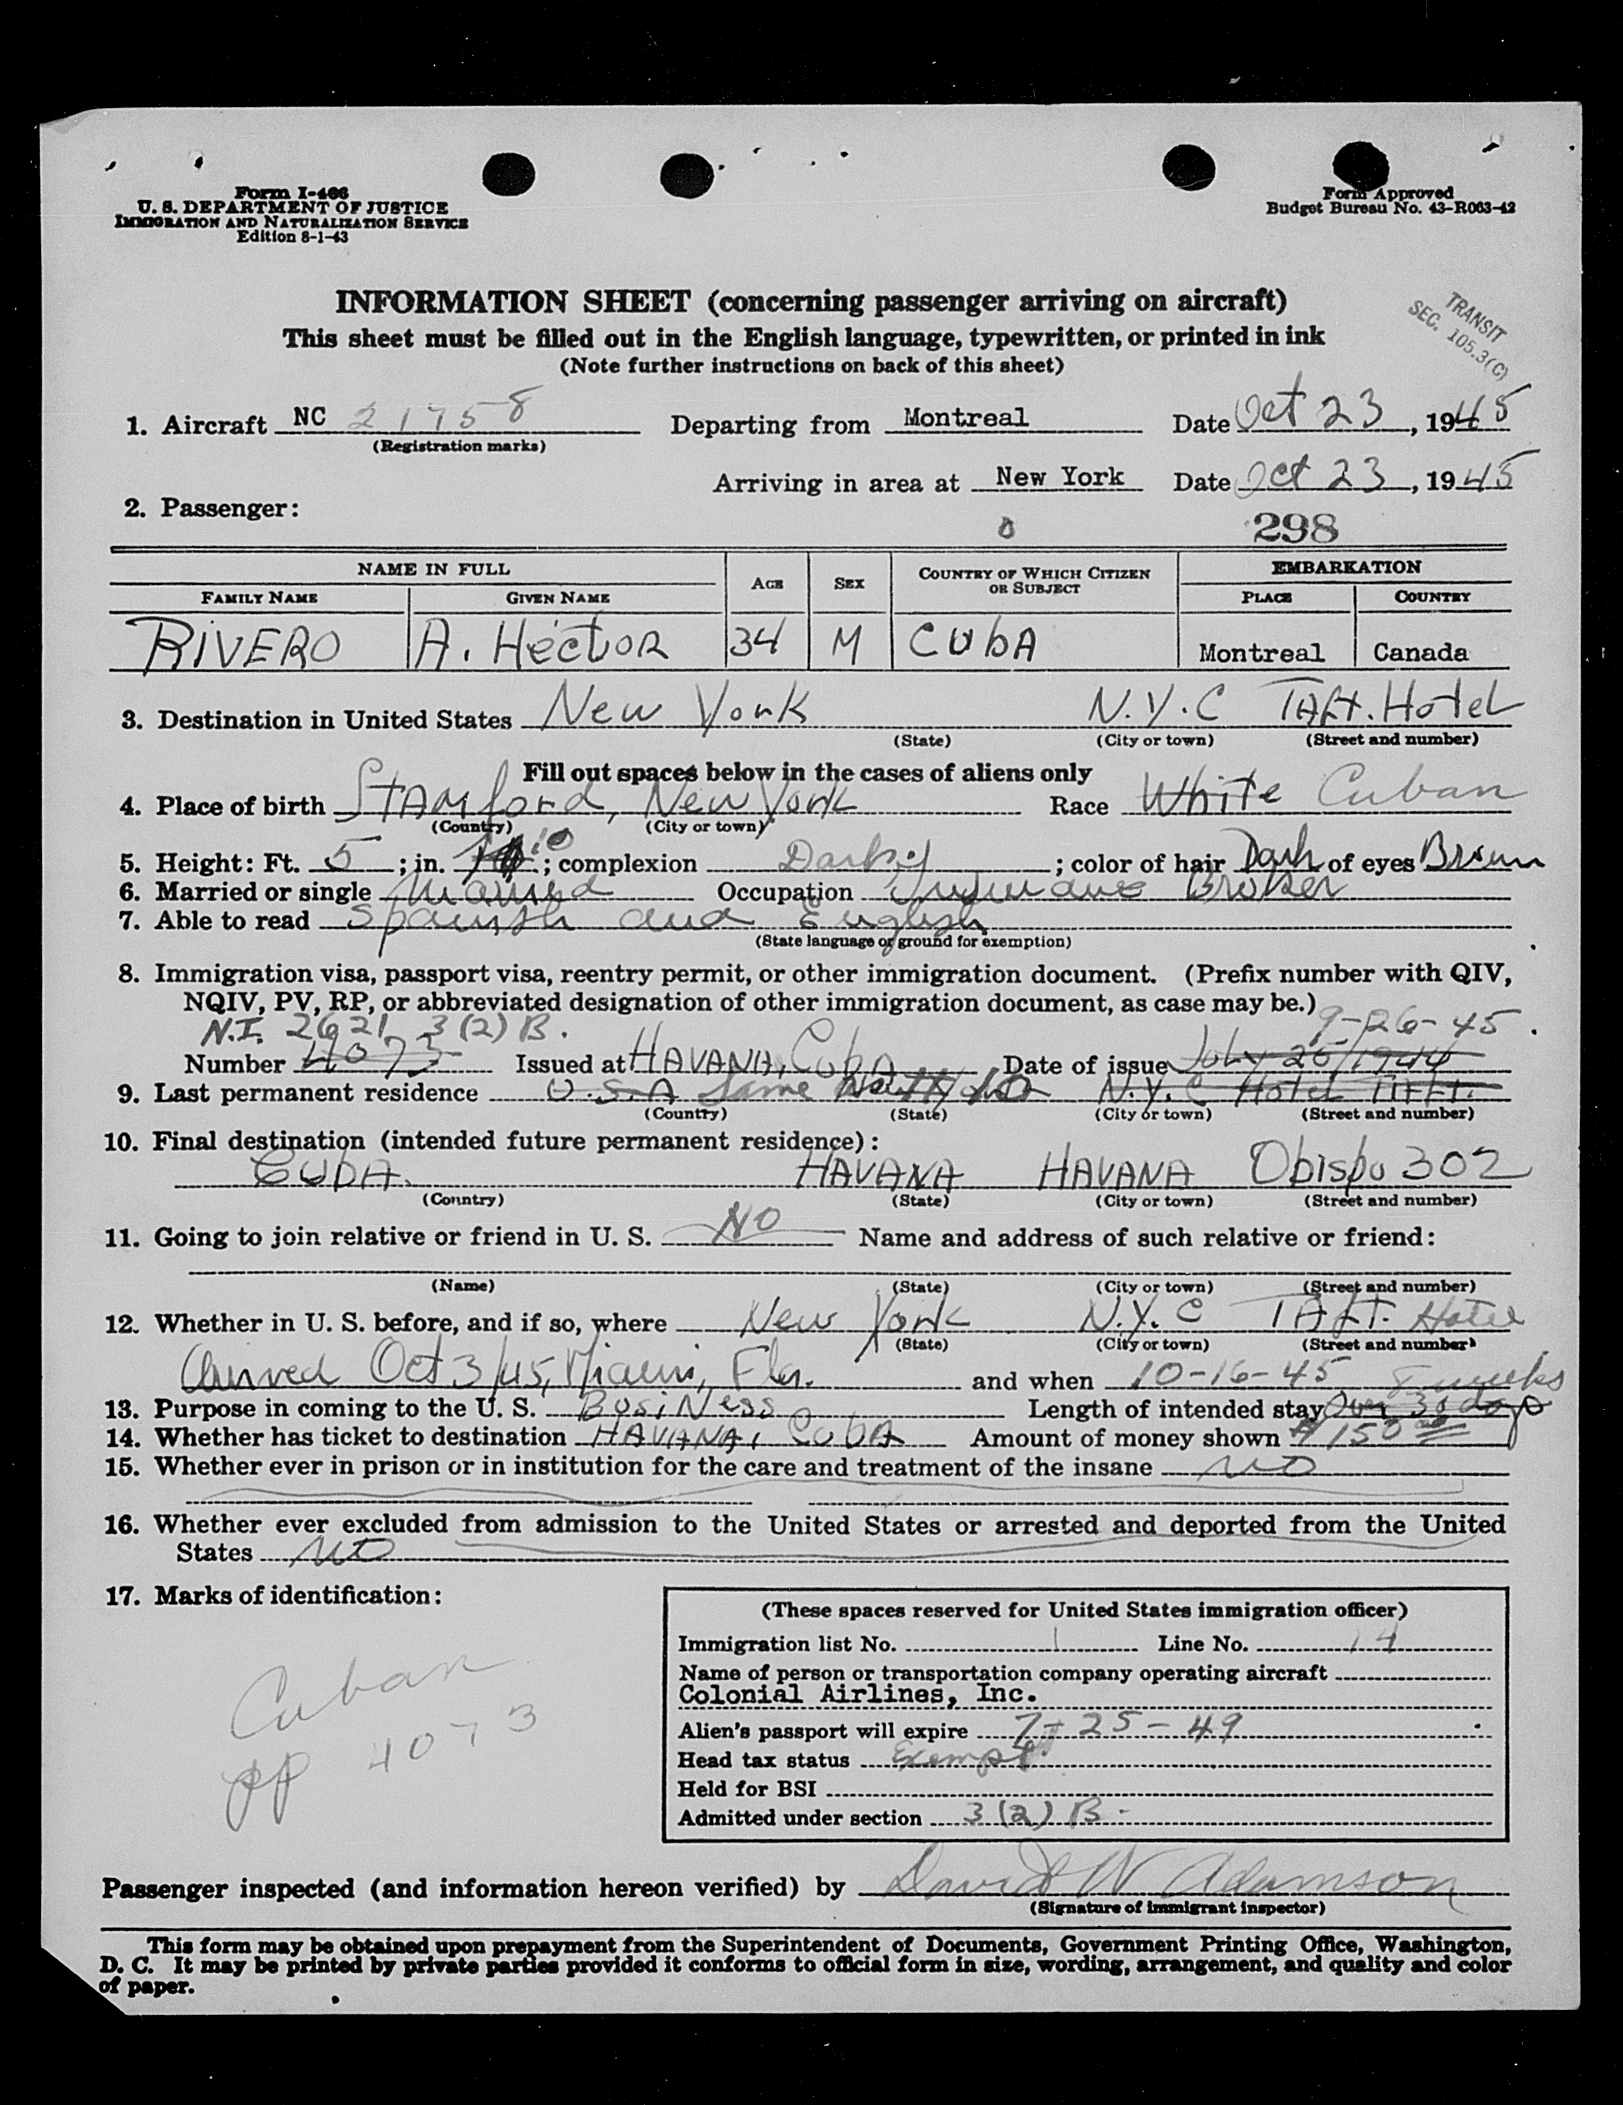 Form I-466
U. S. DEPARTMENT OF JUSTICE
IMMIGRATION AND NATURALIZATION SERVICE
Edition 8-1-43
Form Approved
Budget Bureau No. 43-R063-42
INFORMATION SHEET (concerning passenger arriving on aircraft)
This sheet must be filled out in the English language, typewritten, or printed in ink
(Note further instructions on back of this sheet)
TRANSIT
SEC. 105.3(C)
1. Aircraft NC 21758 Departing from Montreal Date Oct 23, 1945
(Registration marks)
Arriving in area at New York Date Oct 23, 1945
2. Passenger:
298
NAME IN FULL AGE SEX COUNTRY OF WHICH CITIZEN OR SUBJECT EMBARKATION
FAMILY NAME GIVEN NAME PLACE COUNTRY
RIVERO A. Héctor 34 M CUbA Montreal Canada
3. Destination in United States New York N.Y.C TAft. Hotel
(State) (City or town) (Street and number)
Fill out spaces below in the cases of aliens only
4. Place of birth STAMford, New York Race White Cuban
(Country) (City or town)
5. Height: Ft. 5; in. 10; complexion Dark; color of hair Dark of eyes Brown
6. Married or single Married Occupation Insurance Broker
7. Able to read Spanish and English
(State language or ground for exemption)
8. Immigration visa, passport visa, reentry permit, or other immigration document. (Prefix number with QIV,
NQIV, PV, RP, or abbreviated designation of other immigration document, as case may be.)
N.I. 2621 3(2) B. 9-26-45.
Number 4073 Issued at HAVANA, CubA Date of issue July 25/1944
9. Last permanent residence U.S.A Same N.Y.C Hotel TAft.
(Country) (State) (City or town) (Street and number)
10. Final destination (intended future permanent residence):
CUbA. HAVANA HAVANA Obispo 302
(Country) (State) (City or town) (Street and number)
11. Going to join relative or friend in U. S. NO Name and address of such relative or friend:
(Name) (State) (City or town) (Street and number)
12. Whether in U. S. before, and if so, where New York N.Y.C TAft. Hotel
(State) (City or town) (Street and number)
Arrived Oct 3/45, Miami, Fla. and when 10-16-45 8 weeks
13. Purpose in coming to the U. S. BusiNess Length of intended stay Over 30 days
14. Whether has ticket to destination HAVANA, CubA Amount of money shown $150.00
15. Whether ever in prison or in institution for the care and treatment of the insane NO
16. Whether ever excluded from admission to the United States or arrested and deported from the United
States NO
17. Marks of identification:
Cuban
pp 4073
(These spaces reserved for United States immigration officer)
Immigration list No. 1 Line No. 14
Name of person or transportation company operating aircraft
Colonial Airlines, Inc.
Alien's passport will expire 7-25-49
Head tax status Exempt
Held for BSI
Admitted under section 3(2) B.
Passenger inspected (and information hereon verified) by David W Adamson
(Signature of immigrant inspector)
This form may be obtained upon prepayment from the Superintendent of Documents, Government Printing Office, Washington,
D. C. It may be printed by private parties provided it conforms to official form in size, wording, arrangement, and quality and color
of paper.